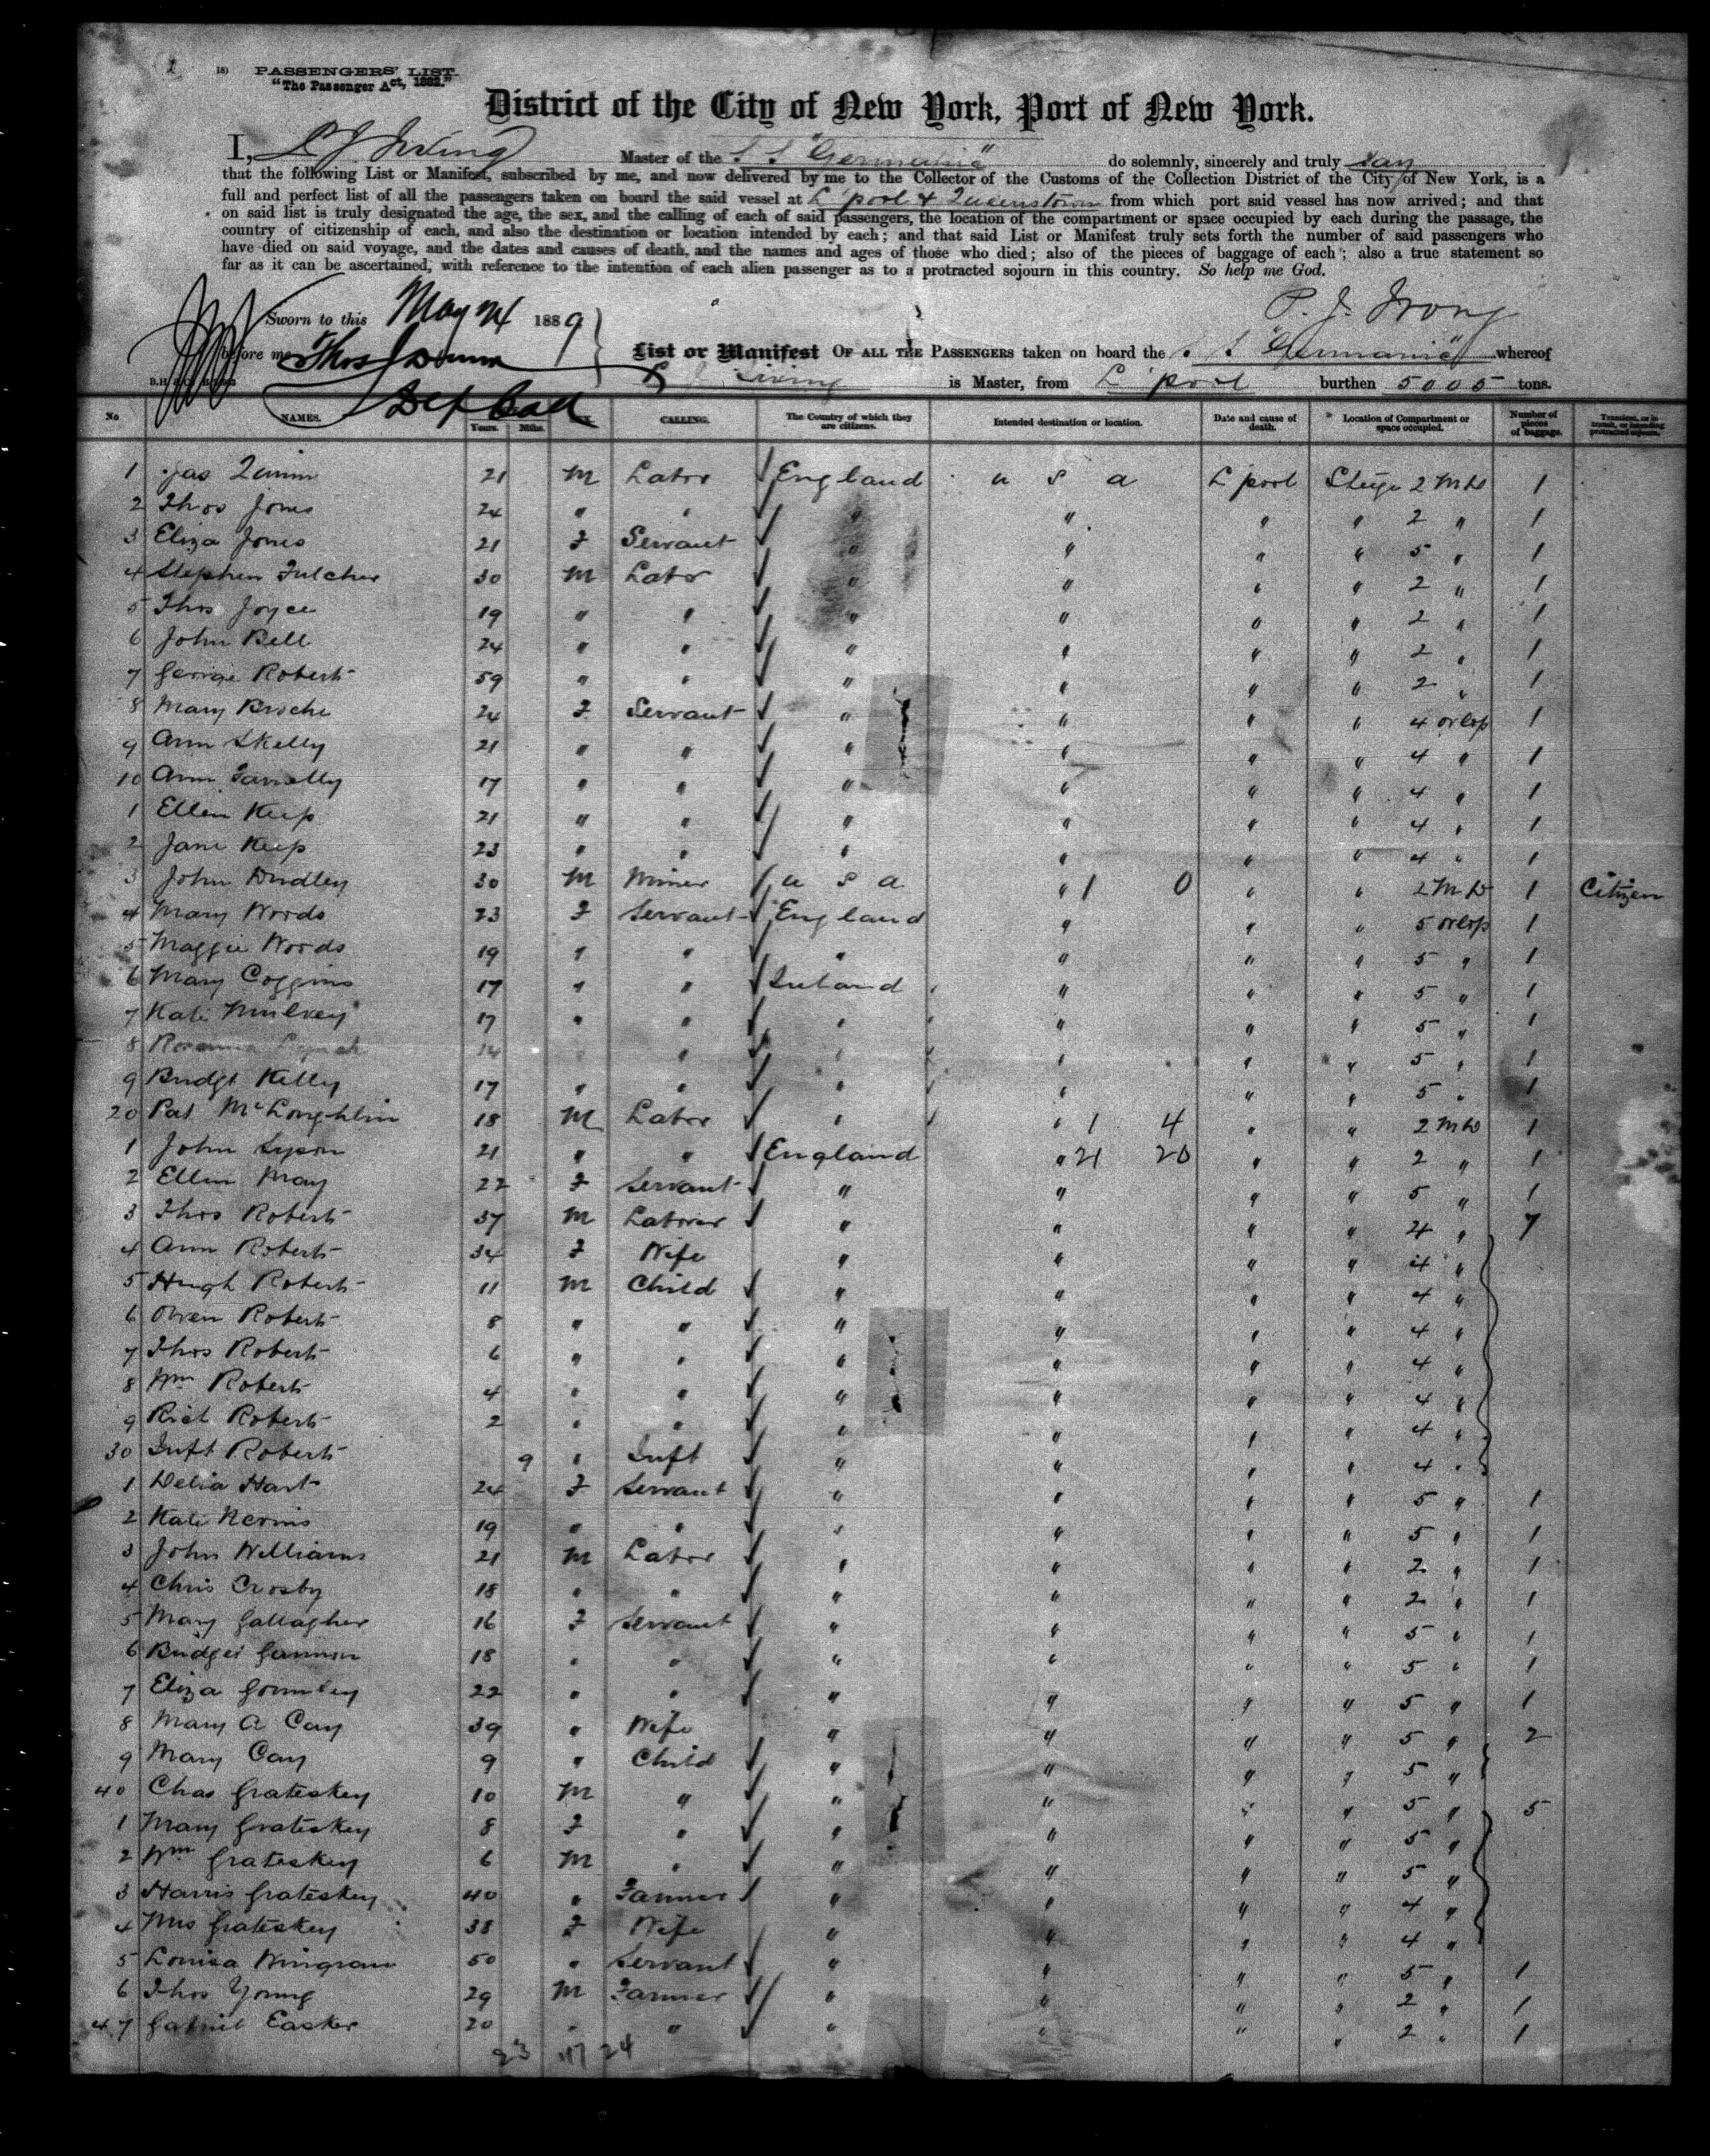 1
18)
PASSENGERS' LIST.
"The Passenger Act, 1882."
District of the City of New York, Port of New York.
I, P J Irving Master of the S S "Germanic" do solemnly, sincerely and truly say
that the following List or Manifest, subscribed by me, and now delivered by me to the Collector of the Customs of the Collection District of the City of New York, is a
full and perfect list of all the passengers taken on board the said vessel at L'pool & Queenstown from which port said vessel has now arrived; and that
on said list is truly designated the age, the sex, and the calling of each of said passengers, the location of the compartment or space occupied by each during the passage, the
country of citizenship of each, and also the destination or location intended by each; and that said List or Manifest truly sets forth the number of said passengers who
have died on said voyage, and the dates and causes of death, and the names and ages of those who died; also of the pieces of baggage of each; also a true statement so
far as it can be ascertained, with reference to the intention of each alien passenger as to a protracted sojourn in this country. So help me God.
Sworn to this May 24 1889
P. J. Irving
before me Thos Dunn
List or Manifest OF ALL THE PASSENGERS taken on board the S S "Germanic" whereof
P J Irving is Master, from L'pool burthen 5005 tons.
Dep Coll
No NAMES. Years. Mths. CALLING. The Country of which they are citizens. Intended destination or location. Date and cause of death. Location of Compartment or space occupied. Number of pieces of baggage. Transient, or in transit, or intending protracted sojourn.
1 Jas 21 M Labor England U S A L'pool Steige 2 M D 1
2 Thos Jones 24 " " " " " " 2 " 1
3 Eliza Jones 21 F Servant " " " " 5 " 1
4 Stephen Fulcher 30 M Labor " " " " 2 " 1
5 Thos Joyce 19 " " " " " " 2 " 1
6 John Bell 24 " " " " " " 2 " 1
7 George Roberts 59 " " " " " " 2 " 1
8 Mary 24 F Servant " " " " 4 orlop 1
9 Ann Skelly 21 " " " " " " 4 " 1
10 Ann Farrelly 17 " " " " " " 4 " 1
1 Ellen Keep 21 " " " " " " 4 " 1
2 Jane Keep 23 " " " " " " 4 " 1
3 John Dudley 30 M Miner U S A " 1 0 " " 2 M D 1 Citizen
4 Mary Woods 23 F Servant England " " " 5 orlop 1
5 Maggie Woods 19 " " " " " " 5 " 1
6 Mary Coggins 17 " " Ireland " " " 5 " 1
7 Kate Mulvey 17 " " " " " " 5 " 1
8 Rosanna Lynch 14 " " " " " " 5 " 1
9 Bridgt Kelly 17 " " " " " " 5 " 1
20 Pat McLoughlin 18 M Labor " " 1 4 " " 2 M D 1
1 John 21 " " England " 21 20 " " 2 " 1
2 Ellen May 22 F Servant " " " " 5 " 1
3 Thos Roberts 37 M Laborer " " " " 4 " 7
4 Ann Roberts 34 F Wife " " " " 4 "
5 Hugh Roberts 11 M Child " " " " 4 "
6 Owen Roberts 8 " " " " " " 4 "
7 Thos Roberts 6 " " " " " " 4 "
8 Wm Roberts 4 " " " " " " 4 "
9 Rich Roberts 2 " " " " " " 4 "
30 Inft Roberts 9 " Inft " " " " 4 "
1 Delia Hart 24 F Servant " " " " 5 " 1
2 Kate Nevins 19 " " " " " " 5 " 1
3 John Williams 21 M Labor " " " " 2 " 1
4 Chris Crosby 18 " " " " " " 2 " 1
5 Mary Gallagher 16 F Servant " " " " 5 " 1
6 Bridget Gannon 18 " " " " " " 5 " 1
7 Eliza Gormley 22 " " " " " " 5 " 1
8 Mary A Cay 39 " Wife " " " " 5 " 2
9 Mary Cay 9 " Child " " " " 5 "
40 Chas Grateskey 10 M " " " " " 5 " 5
1 Mary Grateskey 8 F " " " " " 5 "
2 Wm Grateskey 6 M " " " " " 5 "
3 Harris Grateskey 40 " Farmer " " " " 4 "
4 Mrs Grateskey 38 F Wife " " " " 4 "
5 Louisa Wingrave 50 " Servant " " " " 5 " 1
6 Thos Young 29 M Farmer " " " " 2 " 1
47 Gabriel Easker 20 " " " " " " 2 " 1
23 24